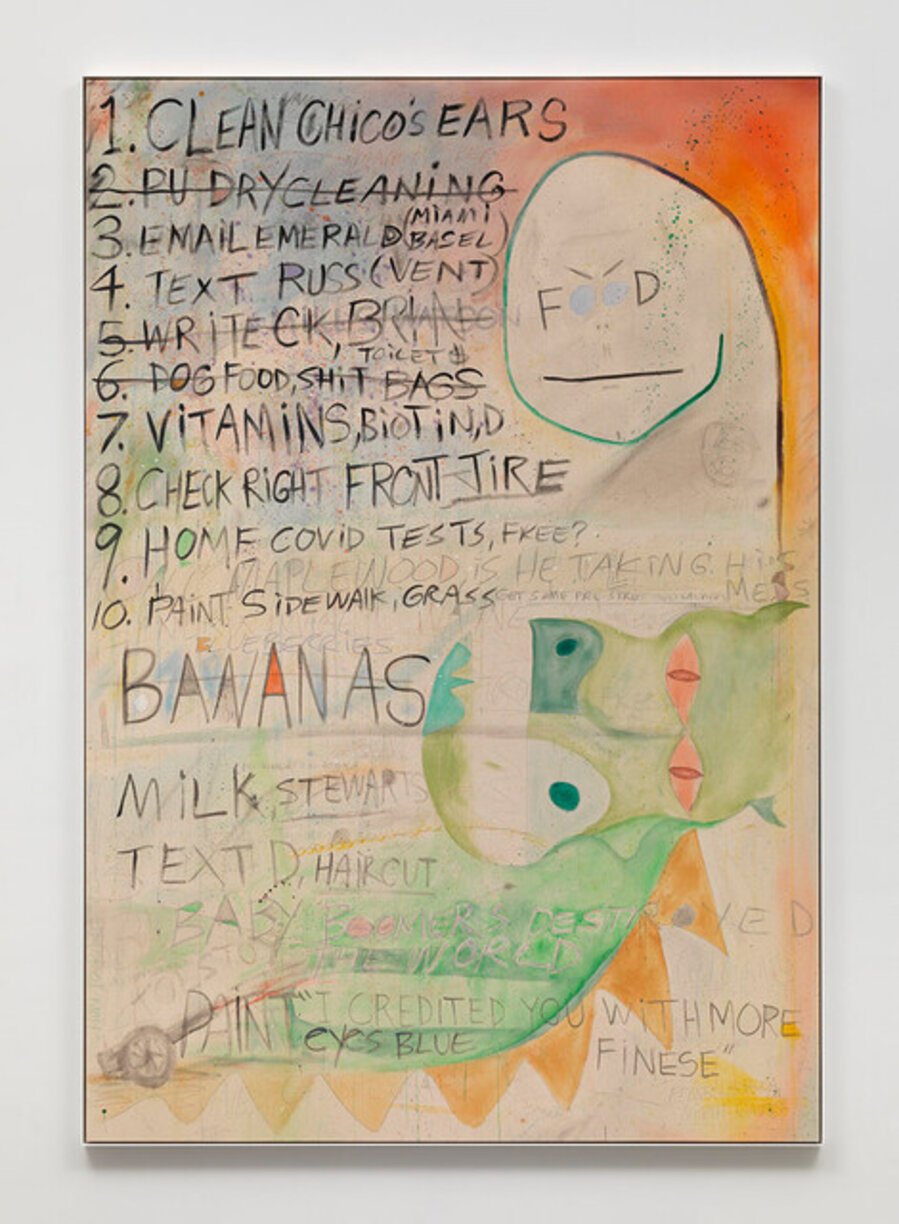 1. CLEAN CHICO'S EARS
2. PU DRYCLEANING
3. EMAIL EMERALD (MIAMI BASEL)
4. TEXT RUSS (VENT)
5. WRITE CK, BRIAN
TOILET $
6. DOG FOOD, SHIT BAGS
7. VITAMINS, BIOTIN, D
8. CHECK RIGHT FRONT TIRE
9. HOME COVID TESTS, FREE?
MAPLEWOOD, IS HE TAKING HIS
MEDS
10. PAINT SIDEWALK, GRASS
BANANAS
MILK, STEWARTS
TEXT D, HAIRCUT
BABY BOOMERS DESTROYED
THE WORLD
PAINT "I CREDITED YOU WITH MORE
eyes BLUE
FINESE"
FOOD